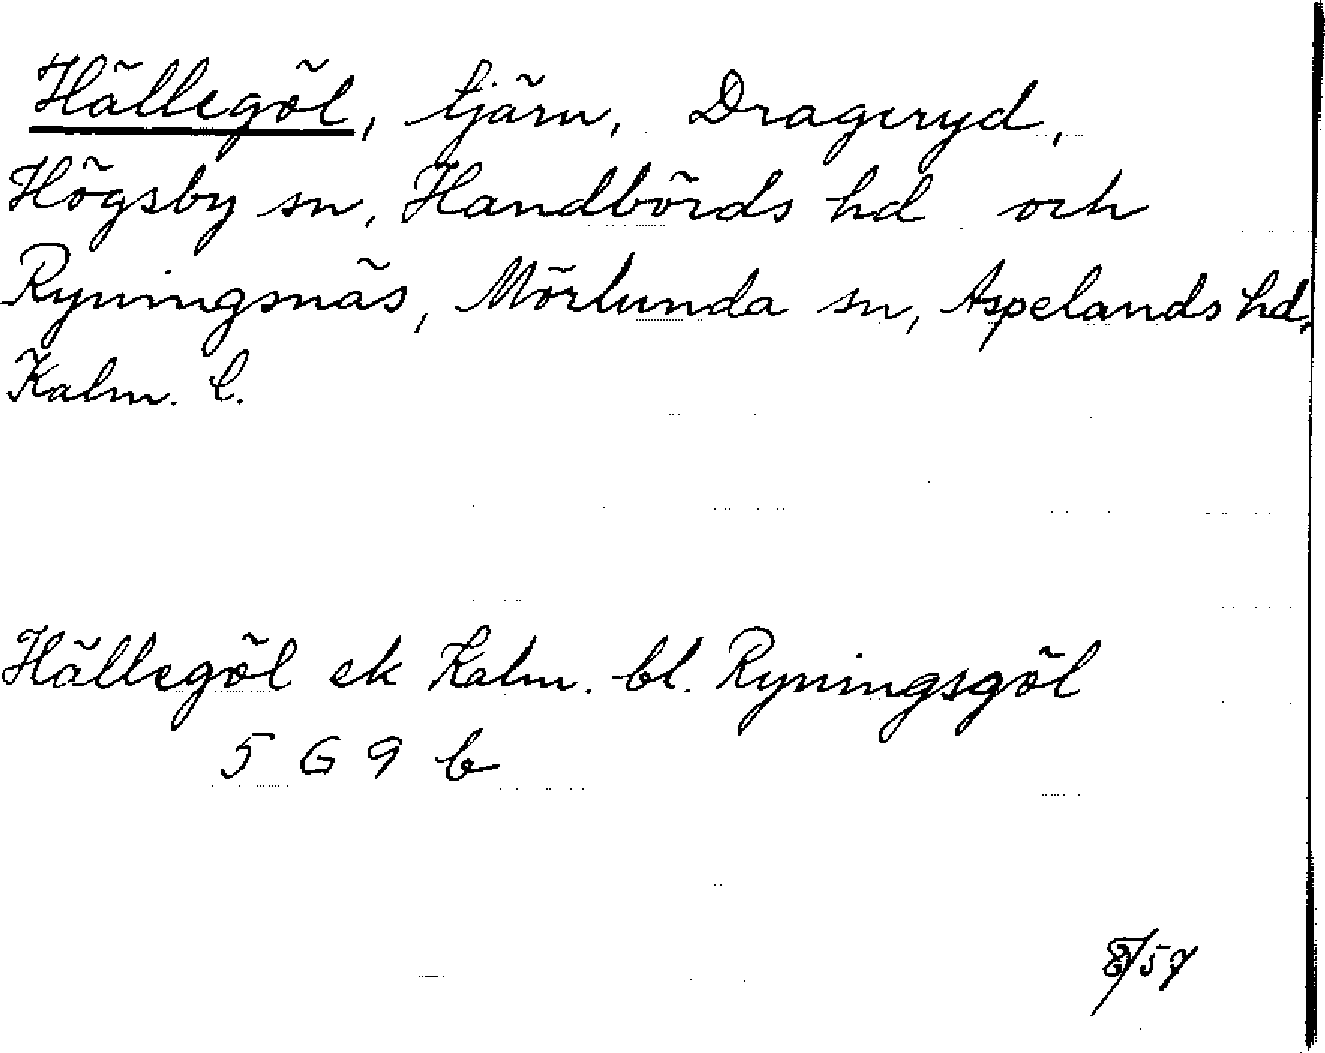 Hällegöl, tjärn, Drageryd,
Högsby sn, Handbörds hd och
Ryningsnäs, Mörlunda sn, Aspelands hd,
Kalm. l.
Hällegöl ek Kalm. bl. Ryningsgöl
5 G 9 b